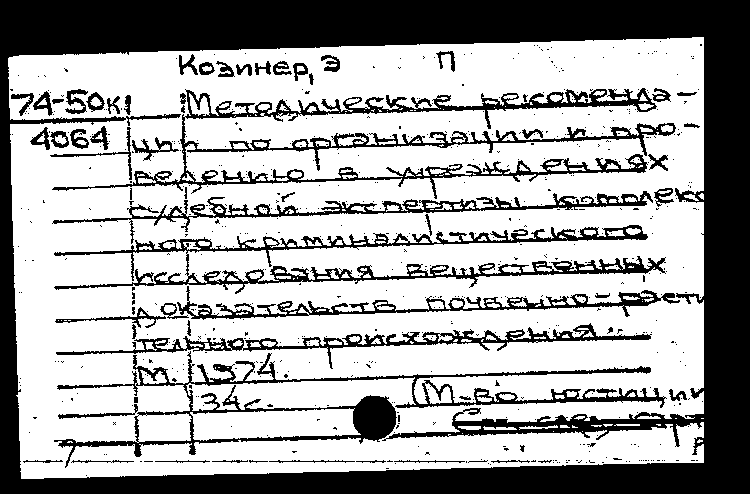 Козинер, Э П
74-50к Методические рекоменда-
4064 ции по организации и про-
ведению в учреждениях
судебной экспертизы комплекс
ного криминалистического
исследования вещественных
доказательств почвенно-расти
тельного происхождения.
М. 1974.
34с. (М-во юстиции
См. след. карт